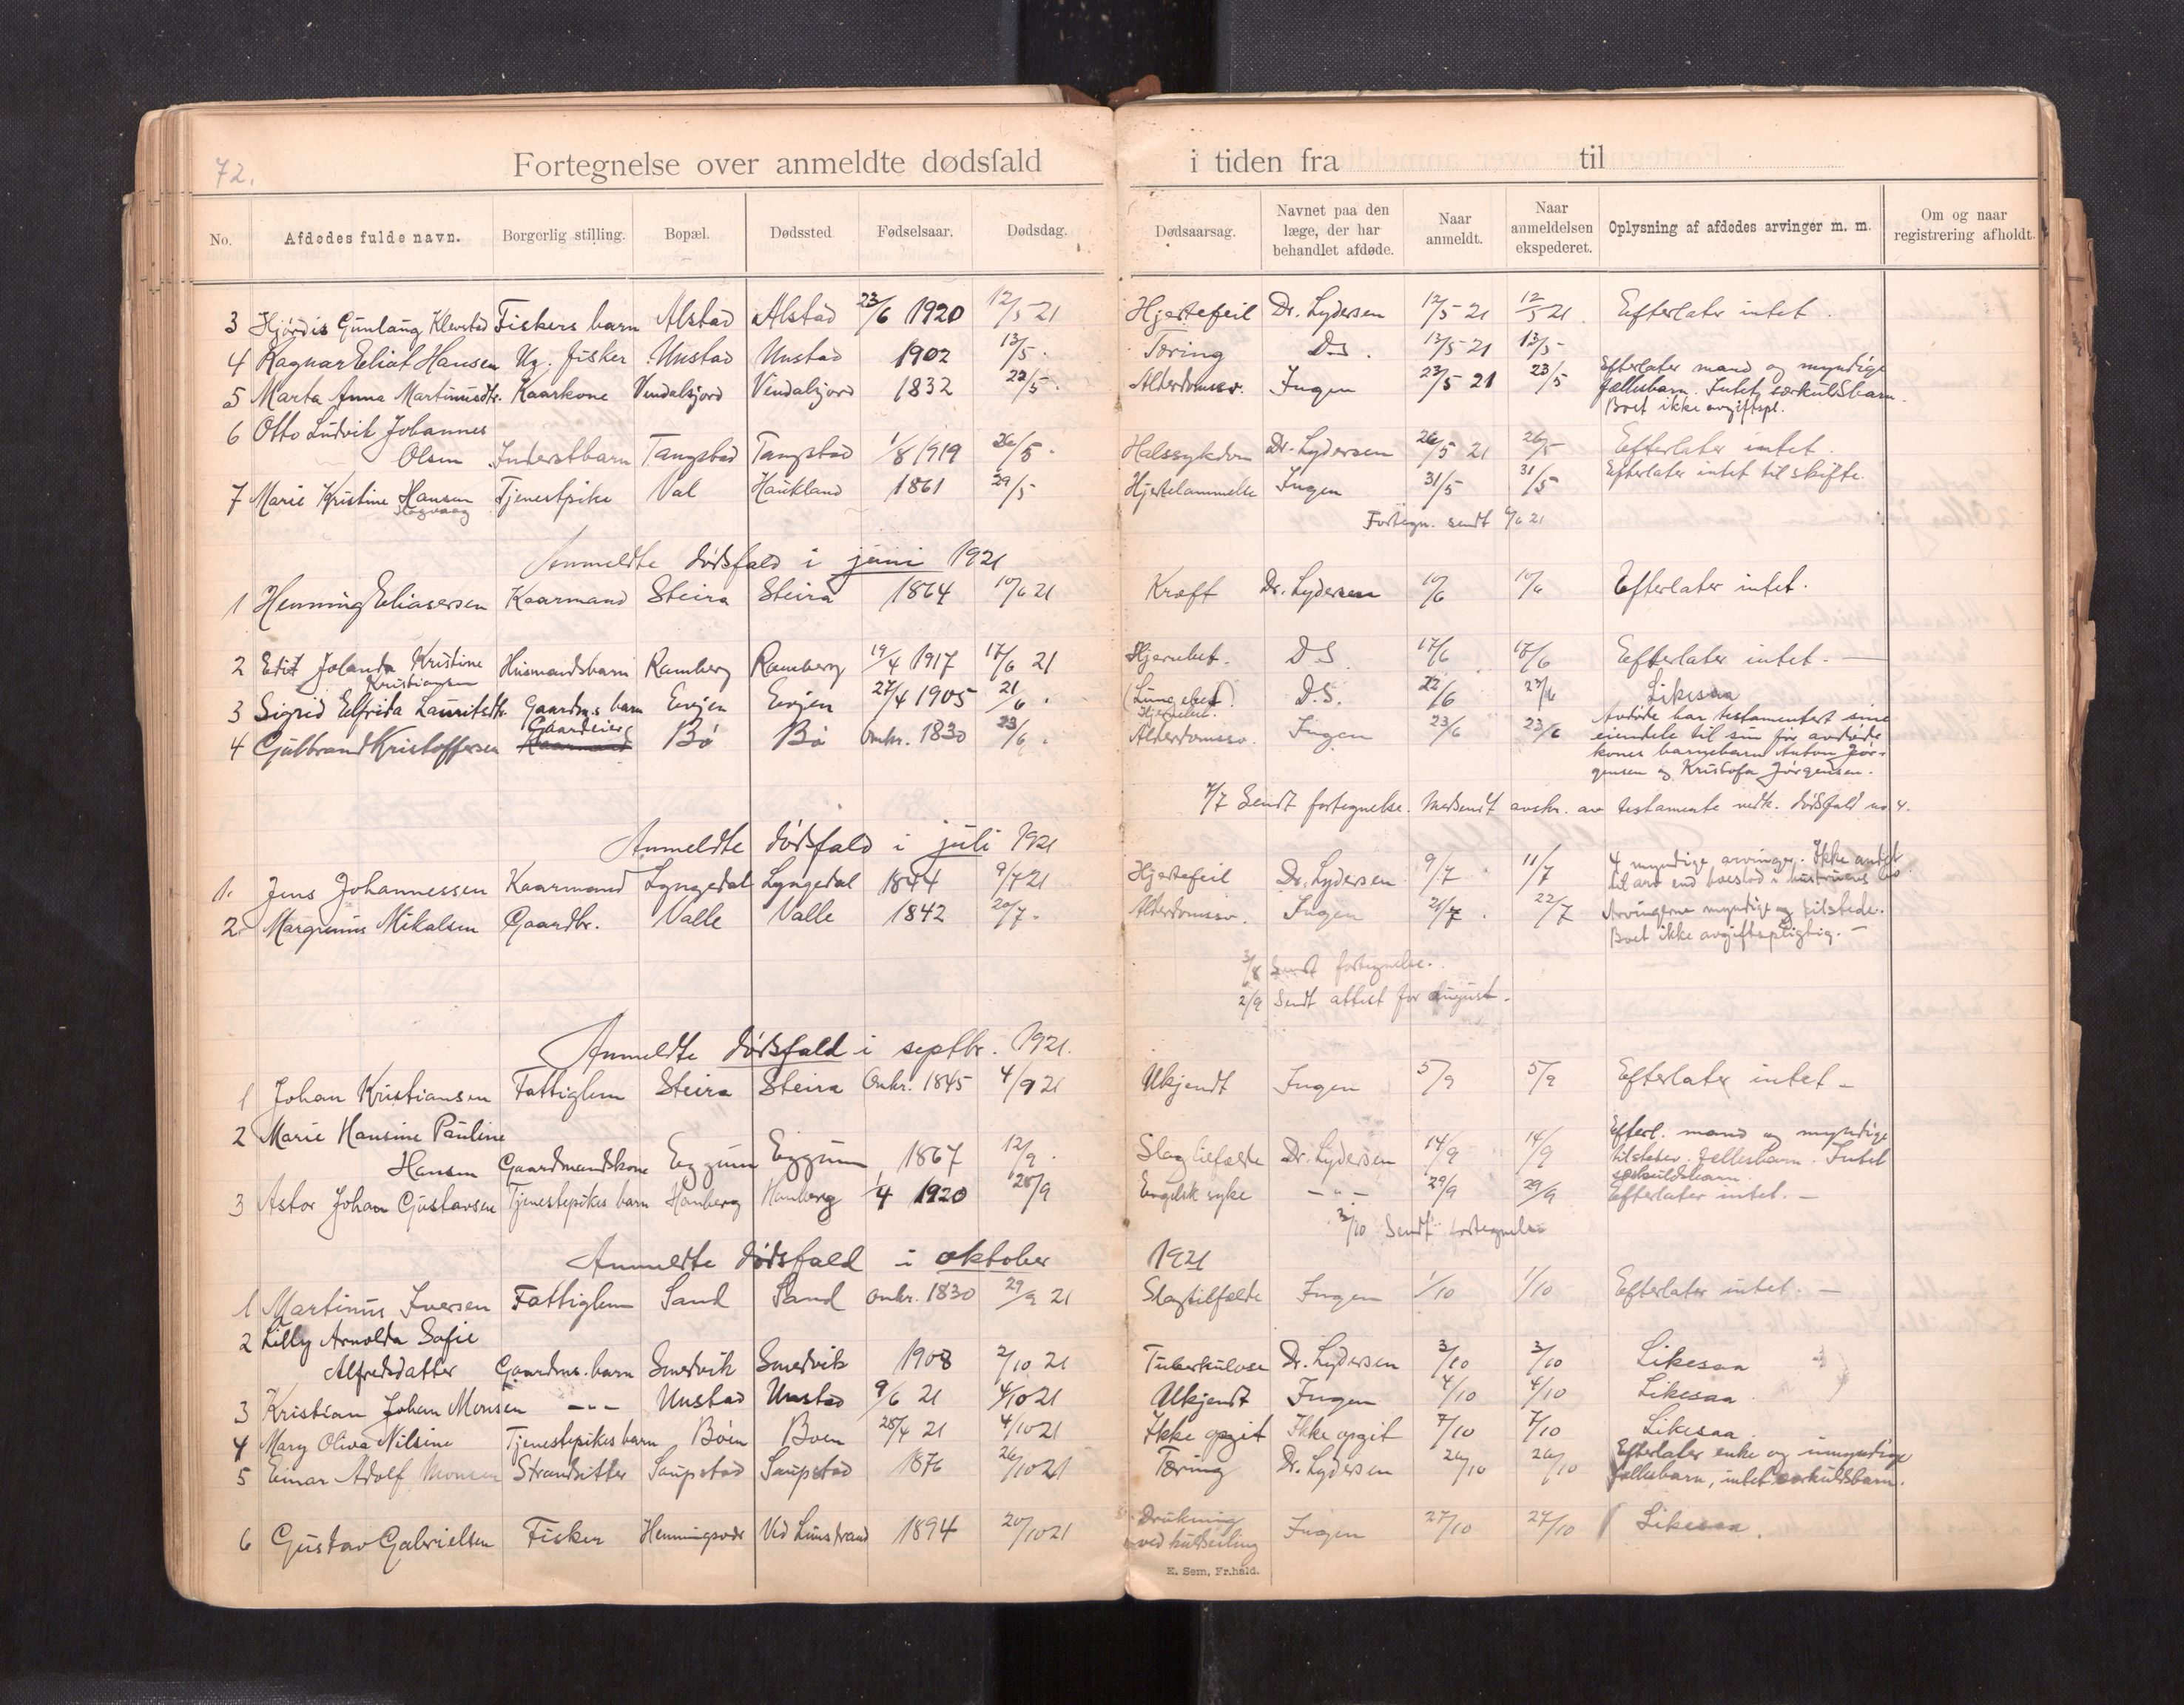 72.
Fortegnelse over anmeldte dødsfald i tiden fra til
No. Afdødes fulde navn. Borgerlig stilling. Bopæl. Dødssted Fødselsaar. Dødsdag. Dødsaarsag. Navnet paa den læge, der har behandlet afdøde. Naar anmeldt. Naar anmeldelsen ekspederet. Oplysning af afdødes arvinger m. m. Om og naar registrering afholdt.
3 Hjørdis Gunlaug Klevstad Fiskers barn Alstad Alstad 23/6 1920 12/5 21 Hjertefeil Dr. Lydersen 12/5 21 12/5 21 Efterlater intet.
4 Ragnar Eliot Hansen Ug. fisker Unstad Unstad 1902 13/5. Tæring D.S. 13/5 21 13/5
5 Marta Anna Martinusdtr. Kaarkone Vendalsjord Vendalsjord 1832 22/5. Alderdomssv. Ingen 23/5 21 23/5 Efterlater mand og myndige
fællesbarn. Intet særkuldsbarn.
Boet ikke avgiftspl.
6 Otto Ludvik Johannes
Olsen Inderstbarn Tangstad Tangstad 1/8 1919 26/5. Halssykdom Dr. Lydersen 26/5 21 26/5 Efterlater intet.
7 Marie Kristine Hansen Tjenestpike Val Haukland 1861 29/5 Hjertelammelse Ingen 31/5 31/5 Efterlater intet til skifte.
Fortegn. sendt 6/6 21
Anmeldte dødsfald i juni 1921
1 Henning Eliasersen Kaarmand Steira Steira 1864 10/6 21 Kræft Dr. Lydersen 10/6 10/6 Efterlater intet.
2 Edit Jolanda Kristine Husmandsbarn Ramberg Ramberg 19/4 1917 17/6 21 Hjernebet. D.S. 17/6 17/6 Efterlater intet. —
Kristiansen
3 Sigrid Elfrida Lauritsdtr. Gaardm.s barn Evjen Evjen 27/4 1905 21/6. (Lungebet.) D.S. 22/6 23/6 Likesaa
Hjernebet.
4 Gulbrand Kristoffersen Gaardeier Kaarmand Bø Bø Omkr. 1830 23/6. Alderdomssv. Ingen 23/6 23/6 Avdøde har testamentert sine
eiendele til sin før avdøde
kones barnebarn Anton Jør-
gensen og Kristofa Jørgensen.
7/7 Sendt fortegnelse. Medsendt avskr. av testamente vedk. dødsfald no 4.
Anmeldte dødsfald i juli 1921
1. Jens Johannessen Kaarmand Lyngedal Lyngedal 1844 9/7 21 Hjertefeil Dr. Lydersen 9/7 11/7 4 myndige arvinger. Ikke andet
til arv end boeslod i hustruens bo.
2. Margrenus Mikalsen Gaardbr. Valle Valle 1842 20/7. Alderdomssv. Ingen 21/7. 22/7 Arvingerne myndige og tilstede.
Boet ikke avgiftspligtig. —
3/8 Sendt fortegnelse.
2/9 Sendt attest for august.
Anmeldte dødsfald i septbr. 1921.
1 Johan Kristiansen Fattiglem Steira Steira Omkr. 1845 4/9 21 Ukjendt Ingen 5/9 5/9 Efterlater intet —
2 Marie Hansine Pauline
Hansen Gaardmandskone Eggum Eggum 1867 12/9. Slagtilfælde Dr. Lydersen 14/9 14/9 Efterl. mand og myndige
tilstedev. fællesbarn. Intet
særkuldsbarn.
3 Astor Johan Gustavsen Tjenestepikes barn Hamberg Hamberg 1/4 1920 28/9 Engelsk syke — " — 29/9 29/9 Efterlater intet. —
3/10 Sendt fortegnelse
Anmeldte dødsfald i oktober 1921
1 Martinus Iversen Fattiglem Sand Sand Omkr. 1830 29/9 21 Slagtilfælde Ingen 1/10 1/10 Efterlater intet. —
2 Lilly Arnolda Sofie
Alfredsdatter Gaardm. barn Smedvik Smedvik 1908 2/10 21 Tuberkulose Dr. Lydersen 3/10 3/10 Likesaa
3 Kristian Johan Monsen — " — Unstad Unstad 9/6 21 4/10 21 Ukjendt Ingen 4/10 4/10 Likesaa.
4 Mary Oliva Nilsine Tjenestepikes barn Bøen Bøen 28/4 21 4/10 21 Ikke opgit Ikke opgit 7/10 7/10 Likesaa.
5 Einar Adolf Monsen Strandsitter Saupstad Saupstad 1876 26/10 21 Tæring Dr. Lydersen 26/10 26/10 Efterlater enke og umyndige
fællesbarn, intet særkuldsbarn.
6 Gustav Gabrielsen Fisker Henningsvær Ved Limstrand 1894 20/10 21 Drukning Ingen 27/10 27/10 Likesaa.
ved kulseiling
E. Sem, Fr.hald.